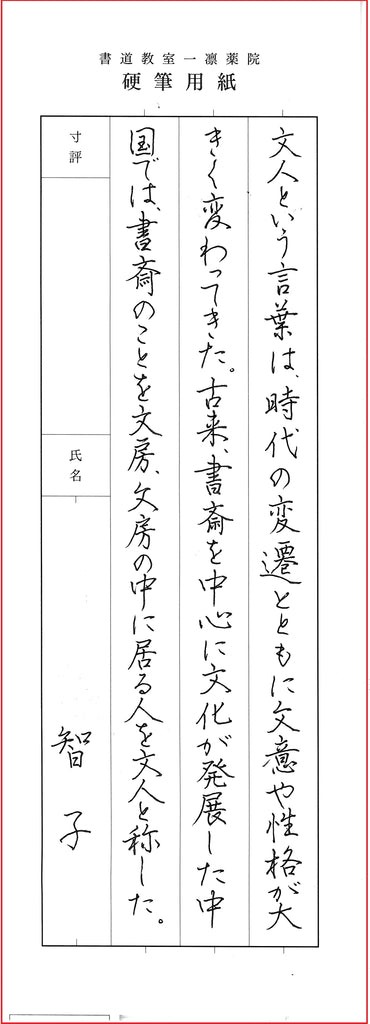 書道教室一凛薬院
硬筆用紙
文人という言葉は、時代の変遷とともに文意や性格が大
きく変わってきた。古来、書斎を中心に文化が発展した中
国では、書斎のことを文房、文房の中に居る人を文人と称した。
寸評
氏名
智子